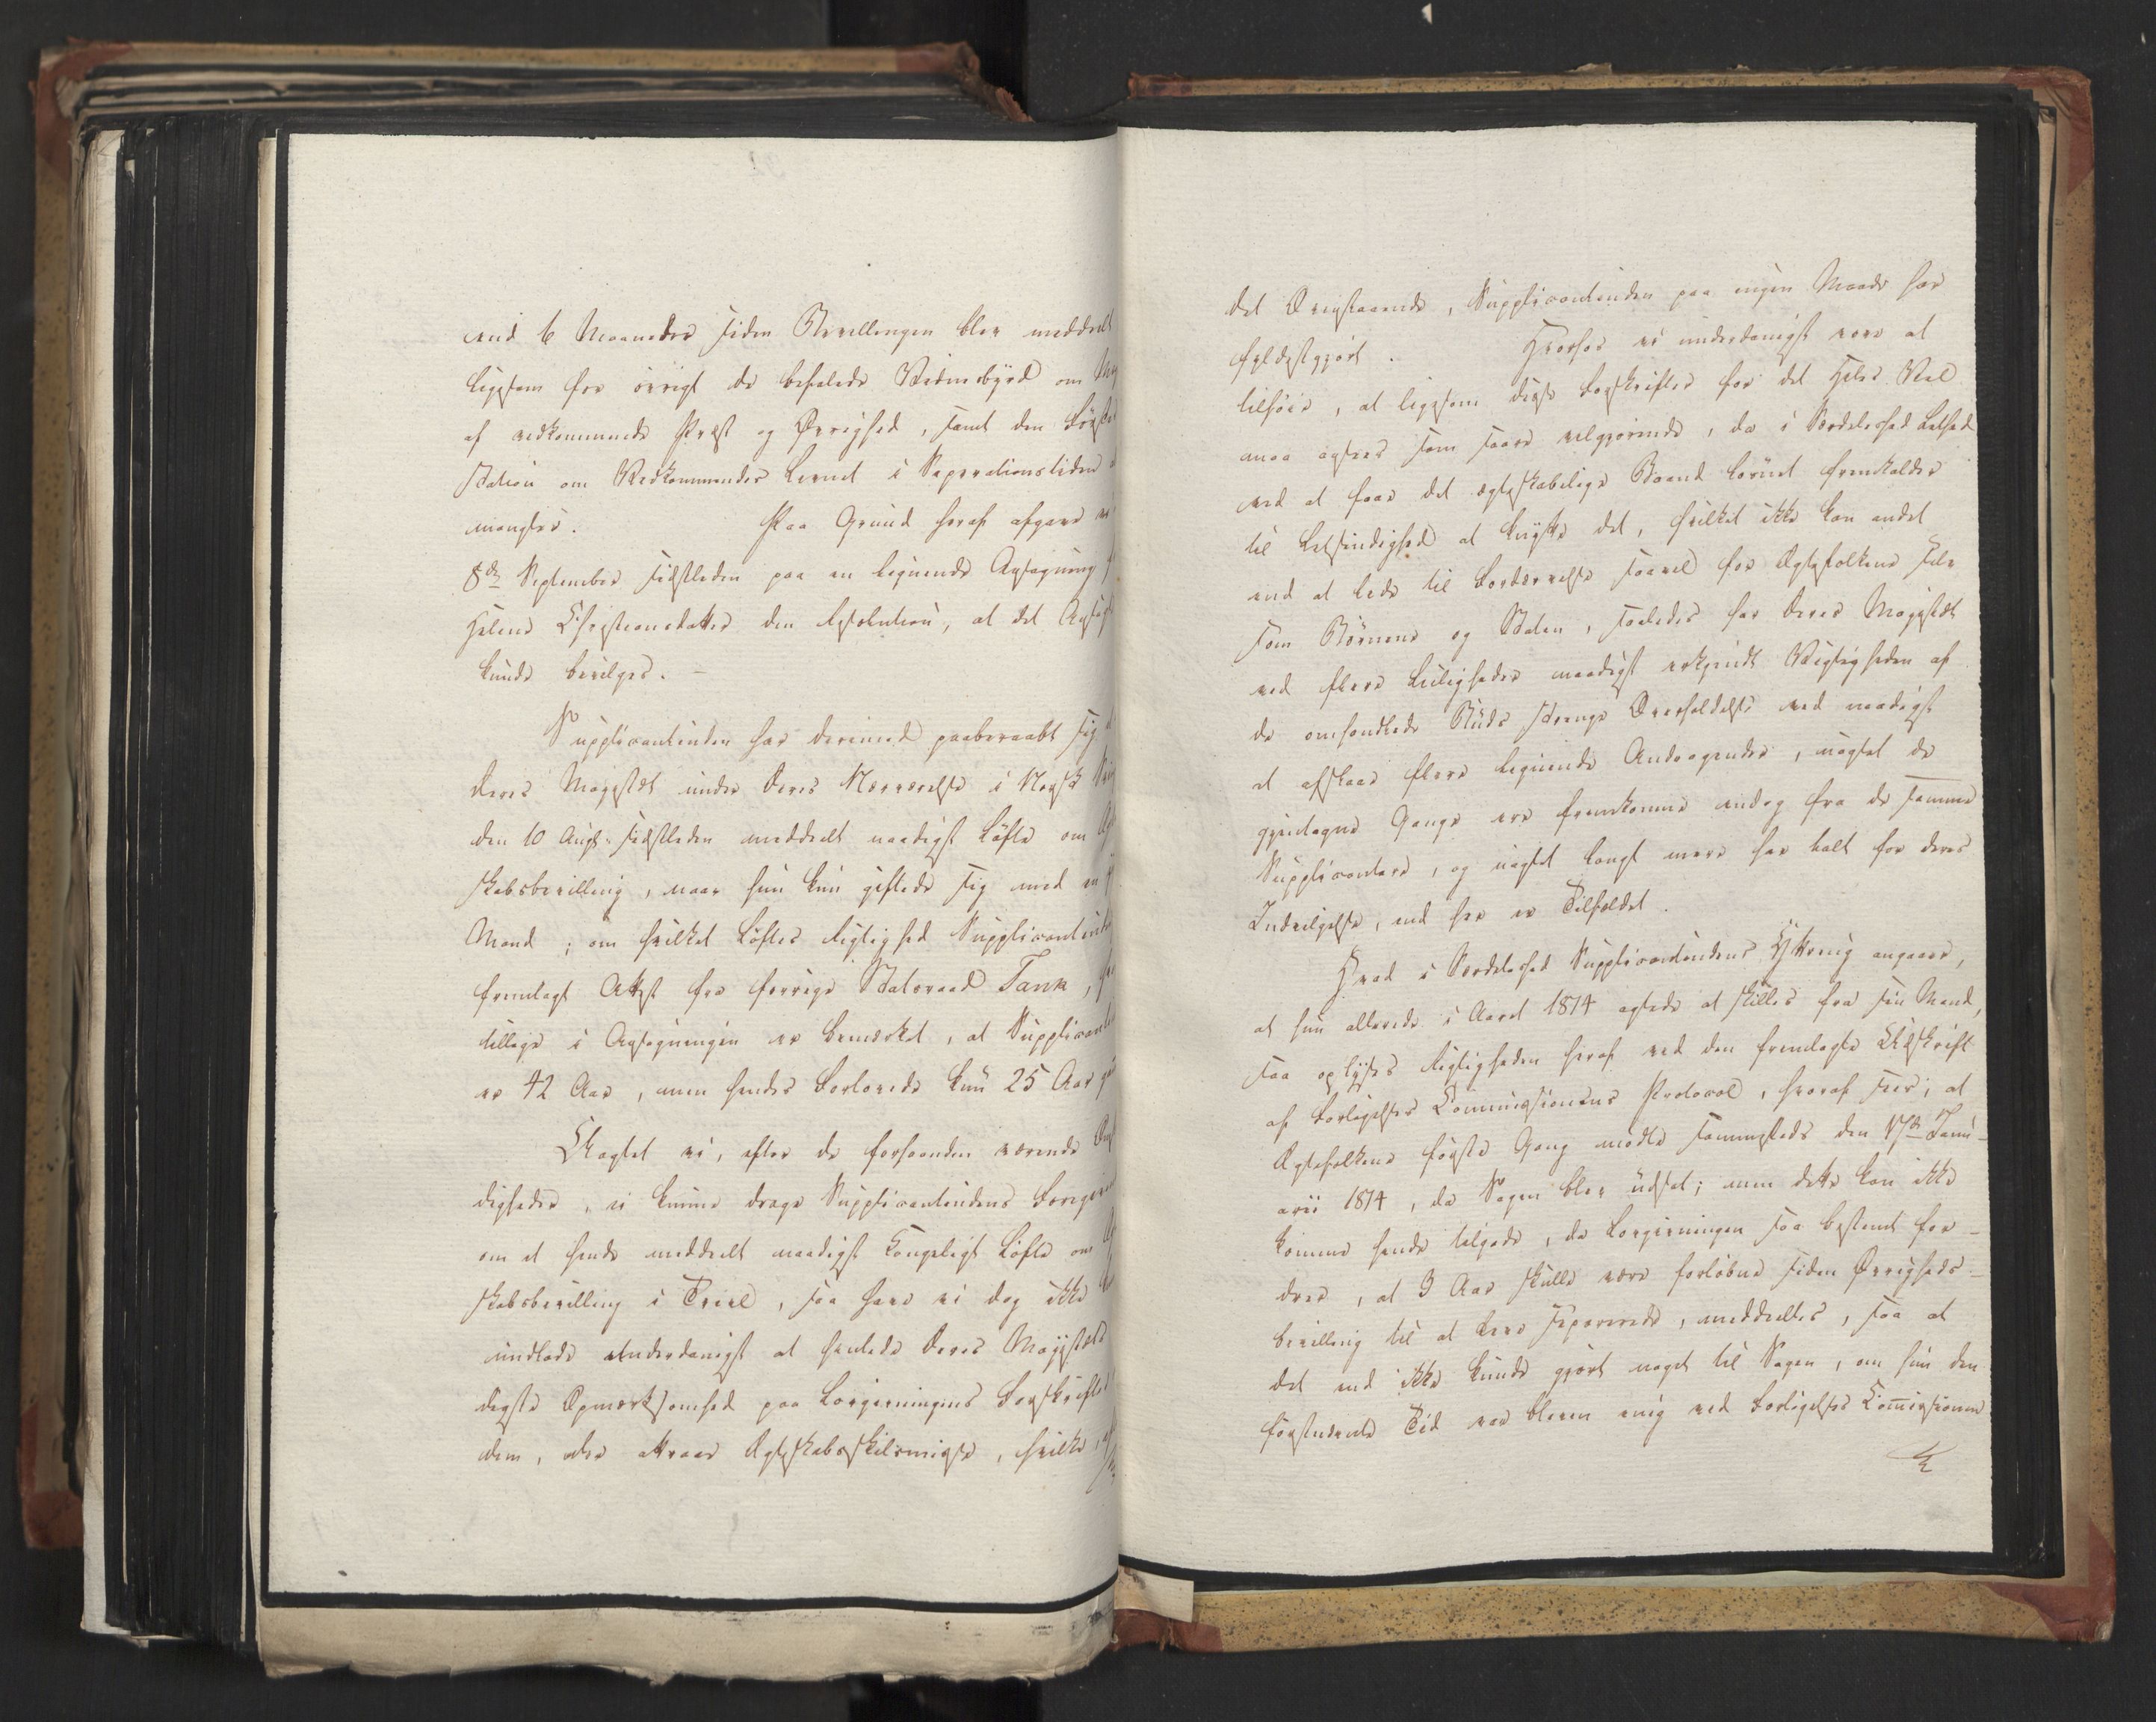 end 6 Maaneder siden Bevillingen blev meddeelt
ligesom for øvrigt de befalede Vidnesbyrd om
af vedkommende Præst og Øvrighed, samt den
station om Vedkommendes Levnet i Separationstiden
mangler. Paa Grund heraf afgave vi
8de September sidstleden paa en lignende Ansøgning
Helene Christiansdatter den Resolution, at det Ansøgte
kunde bevilges. –
Supplicantinden har derimod paaberaabt sig
Deres Majestæt under Deres Nærværelse i Norge
den 10 Augt. sidstleden meddeelt naadigst Løfte om
skabsbevilling, naar hun kun giftede sig med en
Mand; om hvilket Løftes Rigtighed Supplicantinden
fremlagt Attest fra forrige Statsraad Tank,
tillige i Ansøgningen er bemærket, at Supplicantinden
er 42 Aar, men hendes Forlovede kun 25 Aar
Uagtet vi, efter de forhaanden værende
digheder, ei kunne drage Supplicantindens Foregivende
om et hende meddeelt naadigst Kongeligt Løfte om
skabsbevilling i Tvivl, saa have vi dog ikke
undlade underdanigst at henlede Deres Majestæts
digste Opmærksomhed paa Lovgivningens Forskrifter
dem, der attraae Ægteskabsskilsmisse, hvilke,
det Ovenstaaende, Supplicantinden paa ingen Maade har
fyldestgjort. Hvorfor vi underdanigst vove at
tilføie, at ligesom disse Forskrifter for det Hele Vel
maa agtes som saare velgjørende, da i Særdeleshed Lethed
ved at faae det ægteskabelige Baand løsnet fremkalder
til Letsindighed at knytte det, hvilket ikke kan andet
end at lede til Fordærvelse saavel for Ægtefolkene selv
som Børnene og Staten, saaledes har Deres Majestæt
ved flere Leiligheder naadigst erkjendt Vigtigheden af
de omhandlede Buds strenge Overholdelse ved naadigst
at afslaae flere lignende Andragender, uagtet de
gjentagne Gange ere fremkomne endog fra de samme
Supplicantere, og uagtet langt mere har talt for deres
Indvilgelse, end her er Tilfældet.
Hvad i Særdeleshed Supplicantindens Yttring angaaer,
at hun allerede i Aaret 1814 agtede at skilles fra sin Mand,
saa oplyses Rigtigheden heraf ved den fremlagte Udskrift
af Forligelses Commissionens Protocol, hvoraf sees, at
Ægtefolkene første Gang mødte sammesteds den 17de Janu-
arii 1814, da Sagen blev udsat; men dette kan ikke
komme hende tilgode, da Lovgivningen saa bestemt for-
drer, at 3 Aar skulle være forløbne siden Øvrigheds-
bevilling til at leve separerede, meddeeltes, saa at
det end ikke kunde gjort noget til Sagen, om hun den
førstnævnte Tid var bleven enig ved Forligelses Commissionen